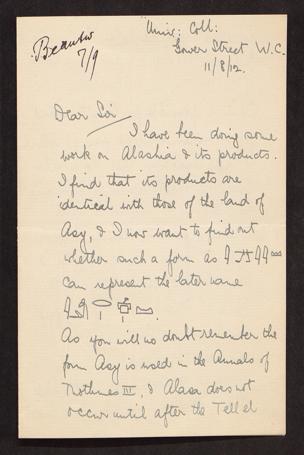 Univ: Coll:
Gower Street W.C.
7/9
11/8/12.
Dear Sir
I have been doing some
work on Alashia & its products.
I find that its products are
identical with those of the land of
Asy, & I now want to find out
whether such a form as
can represent the later name
As you will no doubt remember the
form Asy is used in the Annals of
Thothmes III, & Alasa does not
occur until after the Tell el